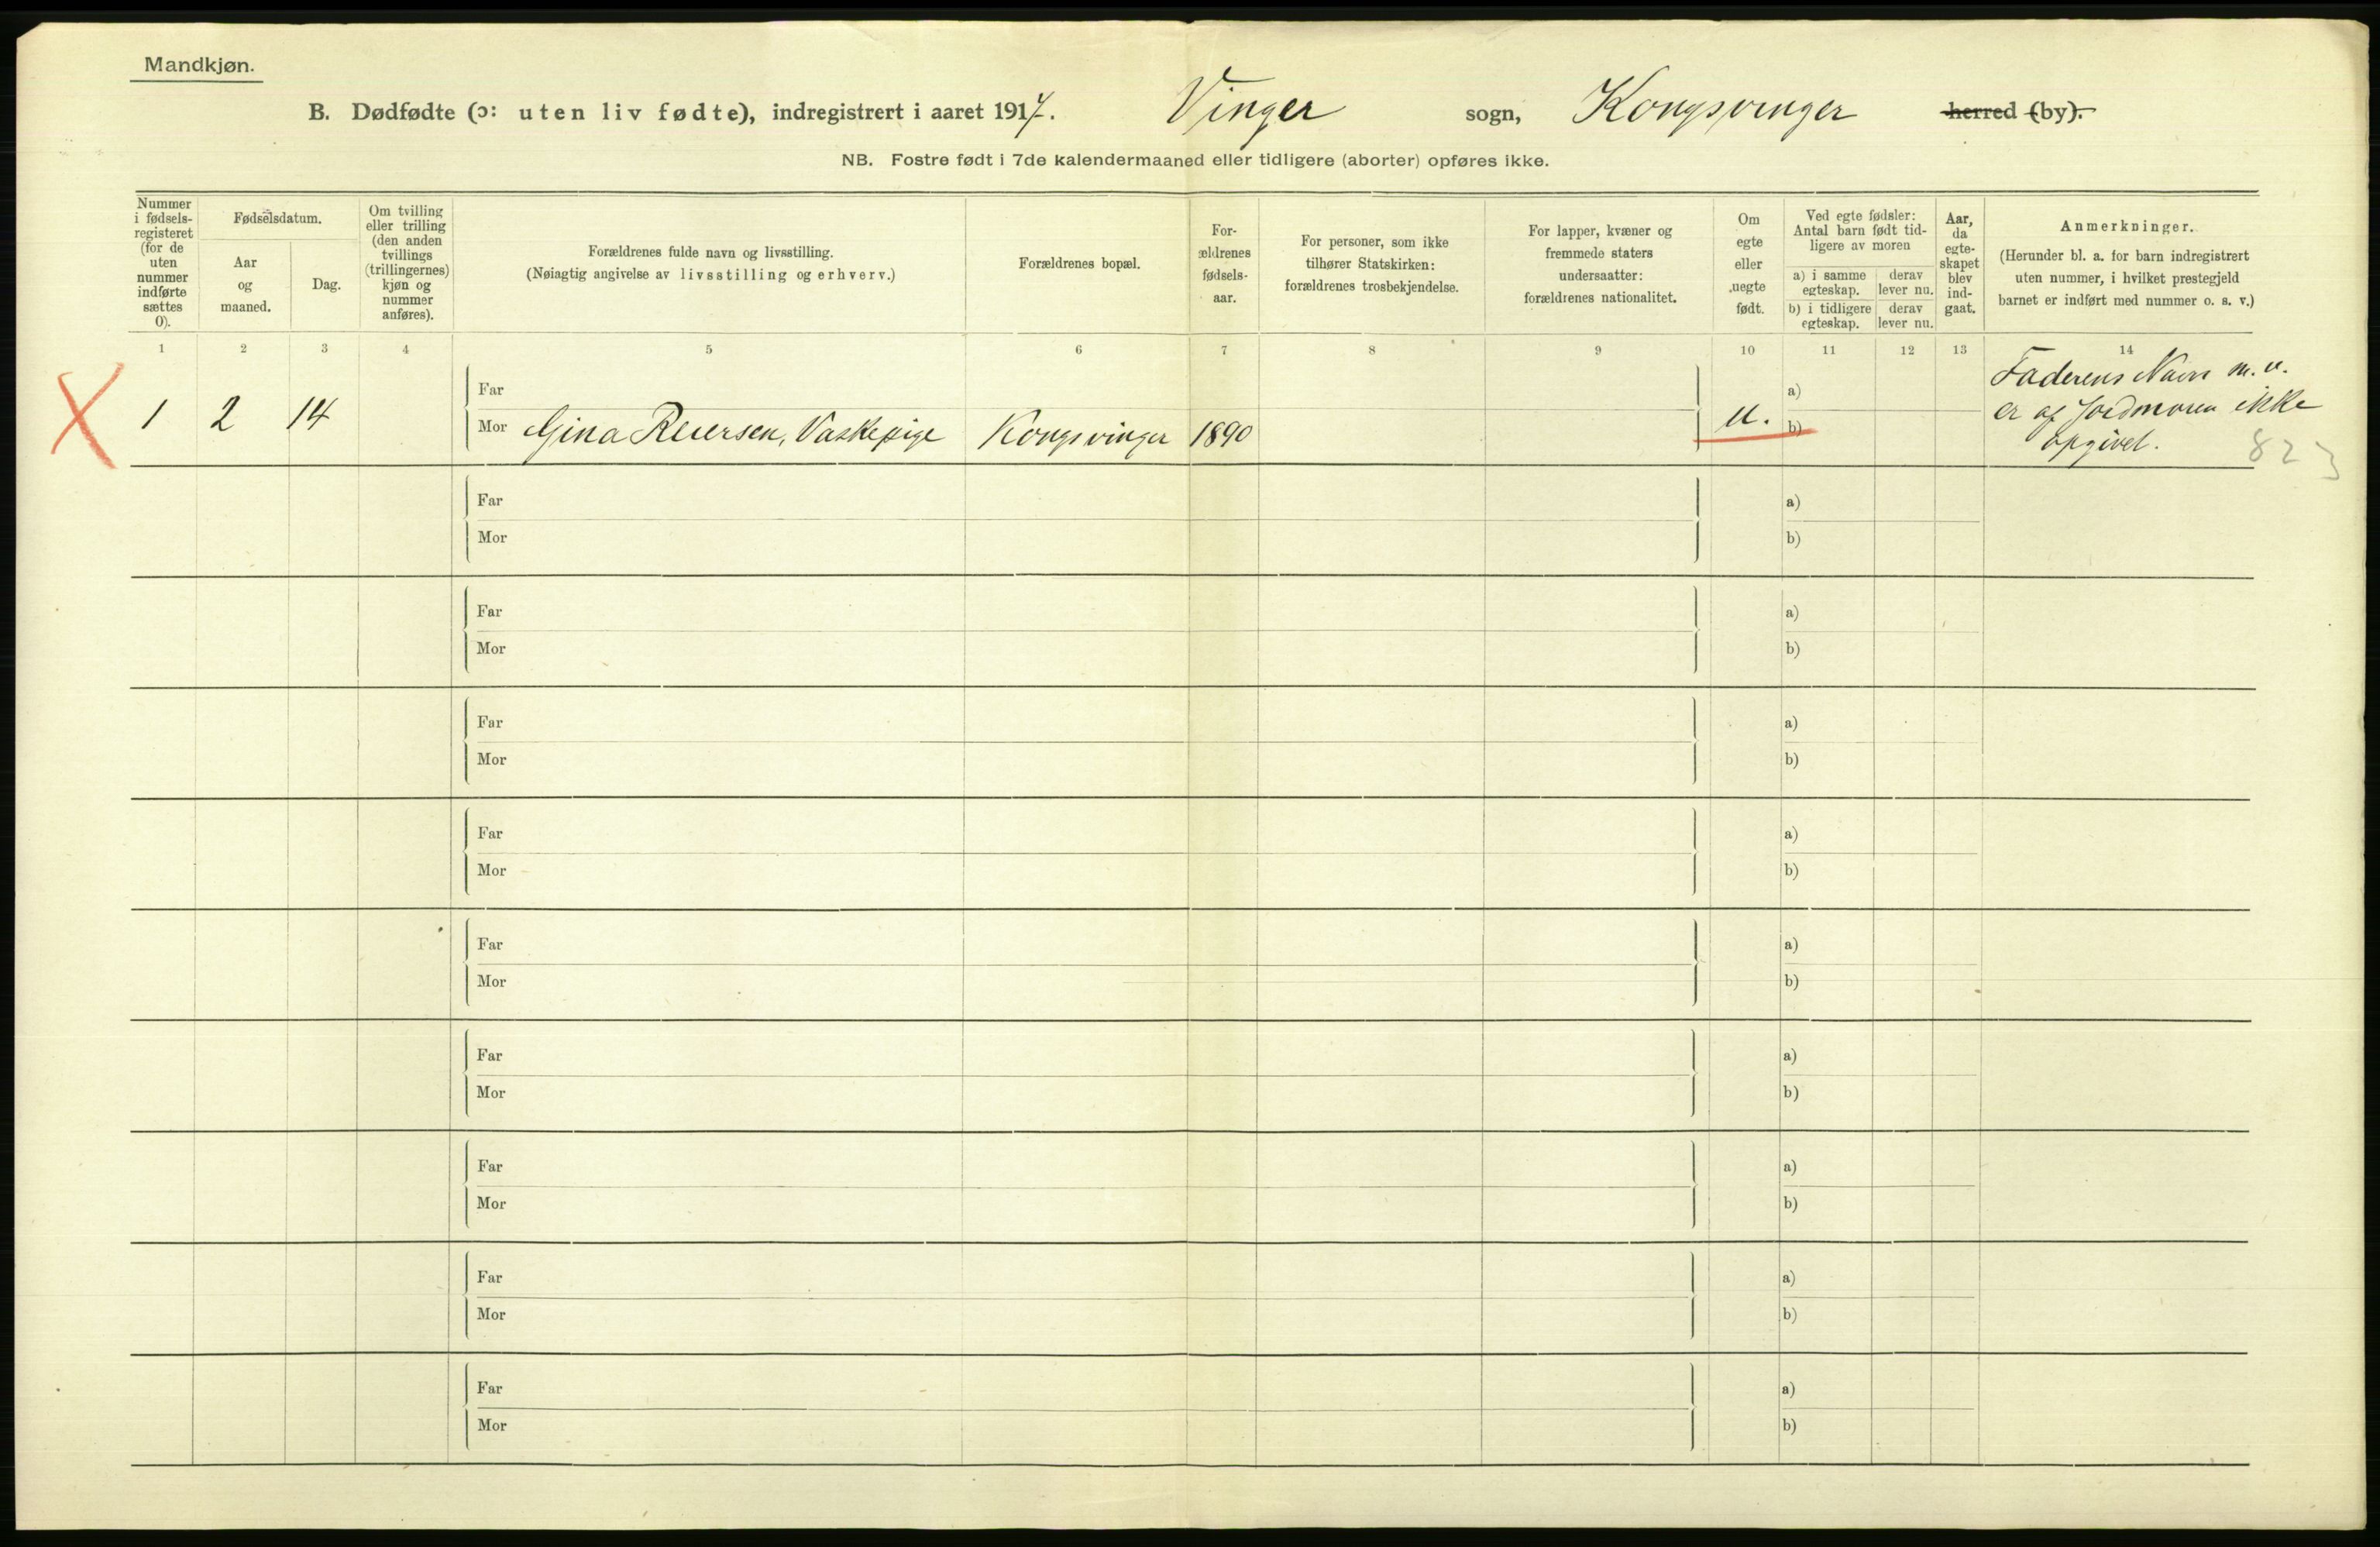 Mandkjøn.
B. Dødfødte (ɔ: uten liv fødte), indregistrert i aaret 1917. Vinger sogn, Kongsvinger herred (by).
NB. Fostre født i 7de kalendermaaned eller tidligere (aborter) opføres ikke.
Nummer
i fødsels-
registeret
(for de
uten
nummer
indførte
sættes
0).
Fødselsdatum.
Aar
og
maaned.
Dag.
Om tvilling
eller trilling
(den anden
tvillings
(trillingernes)
kjøn og
nummer
anføres).
Forældrenes fulde navn og livsstilling.
(Nøiagtig angivelse av livsstilling og erhverv.)
Forældrenes bopæl.
For-
ældrenes
fødsels-
aar.
For personer, som ikke
tilhører Statskirken:
forældrenes trosbekjendelse.
For lapper, kvæner og
fremmede staters
undersaatter:
forældrenes nationalitet.
Om
egte
eller
uegte
født.
Ved egte fødsler:
Antal barn født tid-
ligere av moren
a) i samme
egteskap.
derav
lever nu.
b) i tidligere
egteskap.
derav
lever nu.
Aar,
da
egte-
skapet
blev
ind-
gaat.
Anmerkninger.
(Herunder bl. a. for barn indregistrert
uten nummer, i hvilket prestegjeld
barnet er indført med nummer o. s. v.)
1 2 3 4 5 6 7 8 9 10 11 12 13 14
Far a) Faderens Navn m. v.
1 2 14 Mor Gina Reiersen, Vaskepige Kongsvinger 1890 u. b) er af Jordmoren ikke
opgivet. 823
Far a)
Mor b)
Far a)
Mor b)
Far a)
Mor b)
Far a)
Mor b)
Far a)
Mor b)
Far a)
Mor b)
Far a)
Mor b)
Far a)
Mor b)
Far a)
Mor b)